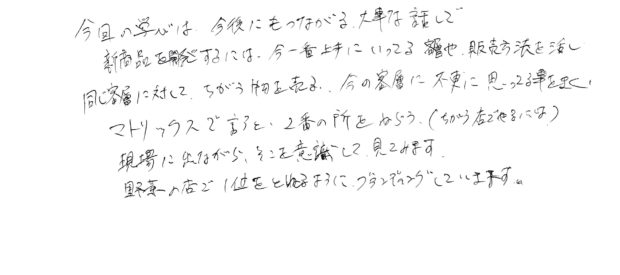 今回の学びは、今後にもつながる、大事な話しで
新商品を開発するには、今一番上手にいってる や、販売方法を活し
同じ客層に対して、ちがう物を売る、今の客層に不便に思ってる事をきく、
マトリックスで言うと、2番の所をねらう、(ちがう店でやるには)
現場に出ながら、そこを意識して見てみます。
野菜の店で1位をとれるように、ブランディングしていきます。